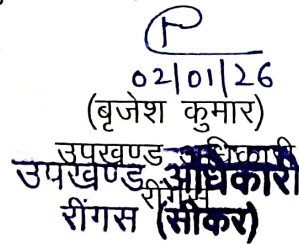 02/01/26
(बृजेश कुमार)
उपखण्ड अधिकारी
रींगस
उपखण्ड अधिकारी
रींगस (सीकर)